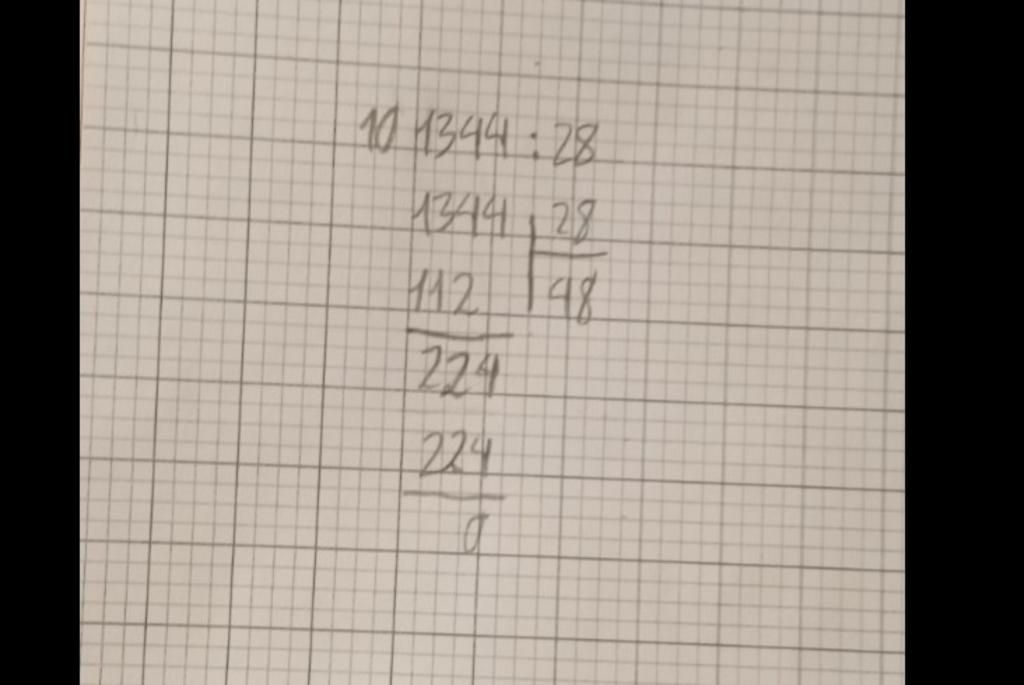 10 1344 : 28
1344 28
112 48
224
224
0